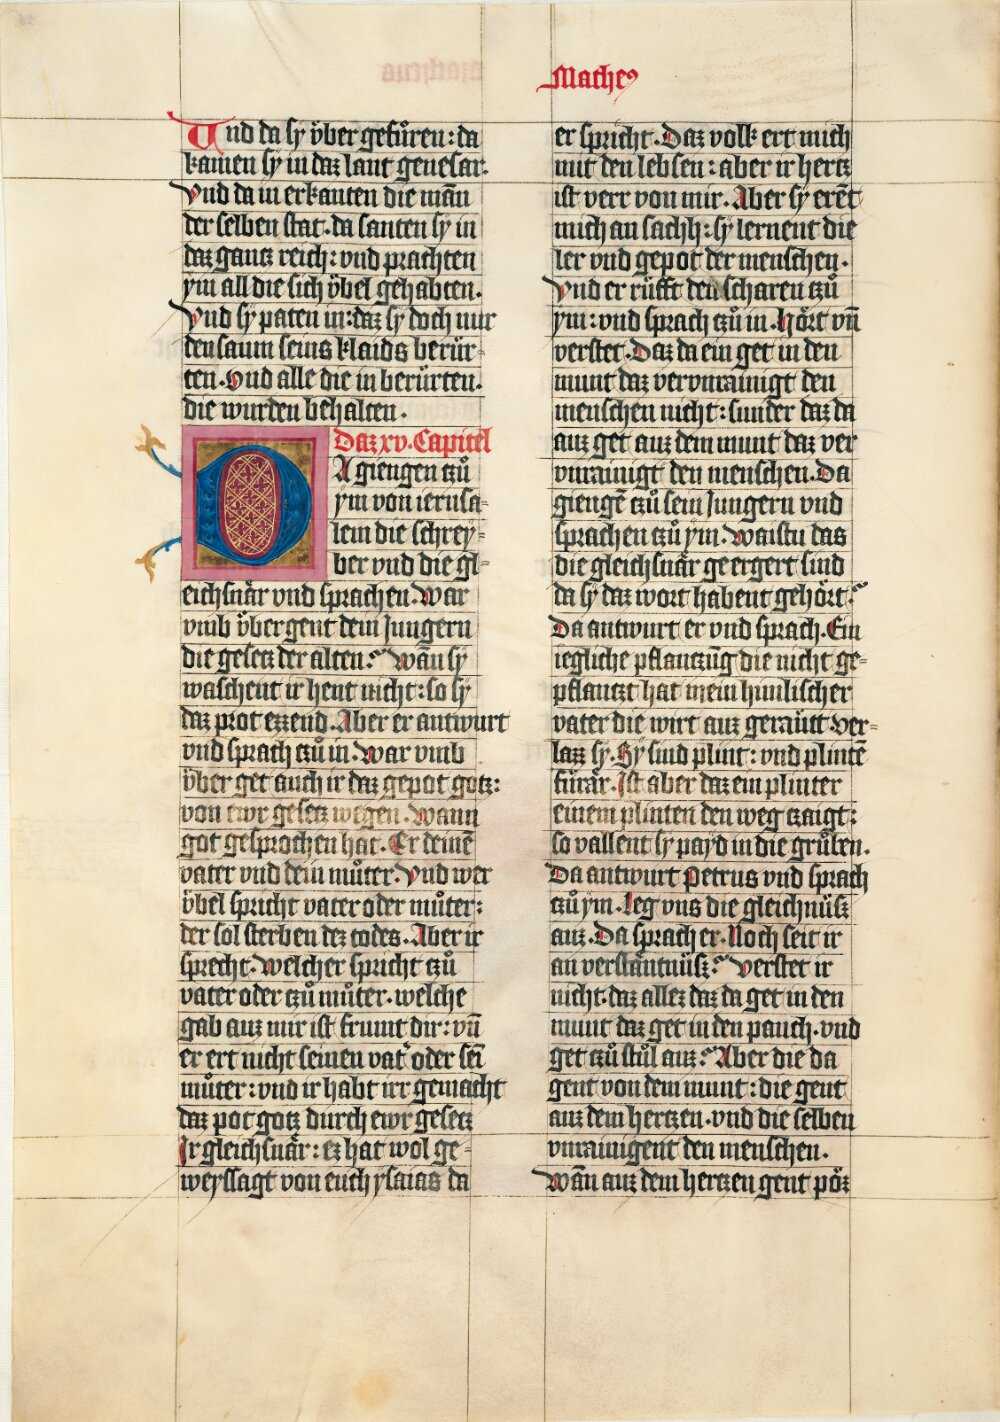 Matheꝰ
Und da sy v̈ber gefůren: da
kamen sy in daz lant genesar.
Vnd da in erkanten die mān
der selben stat. da santen sy in
daz gantz reich: vnd prachten
ym all die sich v̈bel gehabten.
Vnd sy paten in: daz sy doch nur
den saum seins klaids berür-
ten. Vnd alle die in berürten.
die wurden behalten.
Daz xv. Capitel
DA giengen tzů
ym von ierusa-
lem die schrey-
ber vnd die gl-
eichsnär vnd sprachen. War
vmb v̈bergent dein Jungern
die gesetz der alten? Wān sy
waschent ir hent nicht: so sy
daz prot ezzend. Aber er antwurt
vnd sprach tzů in. War vmb
v̈ber get auch ir daz gepot gotz:
von ewr gesetz wegen. Wann
got gesprochen hat. Er deinē
vater vnd dein můter. Vnd wer
v̈bel spricht vater oder můter:
der sol sterben dez todes. Aber ir
sprecht. Welcher spricht tzů
vater oder tzů můter. welche
gab auz mir ist frumt dir: vn̄
er ert nicht seinen vat͛ oder sei̅
můter: vnd ir habt irr gemacht
daz pot gotz durch ewr gesetz
Ir gleichsnär: ez hat wol ge-
weyssagt von euch ysaias da
er spricht. Daz volk ert mich
mit den lebsen: aber ir hertz
ist verr von mir. Aber sy erēt
mich an sachh: sy lernent die
ler vnd gepot der menschen.
Vnd er rüfft den scharen tzů
ym: vnd sprach tzů in. Hört vn̄
verstet. Daz da ein get in den
munt daz vervnrainigt den
menschen nicht: sunder daz da
auz get auz dem munt daz ver
vnrainigt den menschen. Da
giengē tzů sein Jungern vnd
sprachen tzů ym. Waistu das
die gleichsnär geergert sind
da sy daz wort habent gehört?
Da antwurt er vnd sprach. Ein
iegliche pflantzūg die nicht ge-
pflantzt hat mein himlischer
vater die wirt auz geräütt. Ver-
lazz sy. Sy sind plint: vnd plintē
fürär. Ist aber daz ein plinter
einem plinten den weg tzaigt:
so vallent sy payd in die grůben.
Da antwurt Petrus vnd sprach
tzů ym. Leg vns die gleichnüsz
auz. Da sprach er. Noch seit ir
an verstantnüsz? Verstet ir
nicht. daz allez daz da get in den
munt daz get in den pauch. vnd
get tzů stůl auz? Aber die da
gent von dem munt: die gent
auz dem hertzen. vnd die selben
vnrainigent den menschen.
Wān auz dem hertzen gent pöz